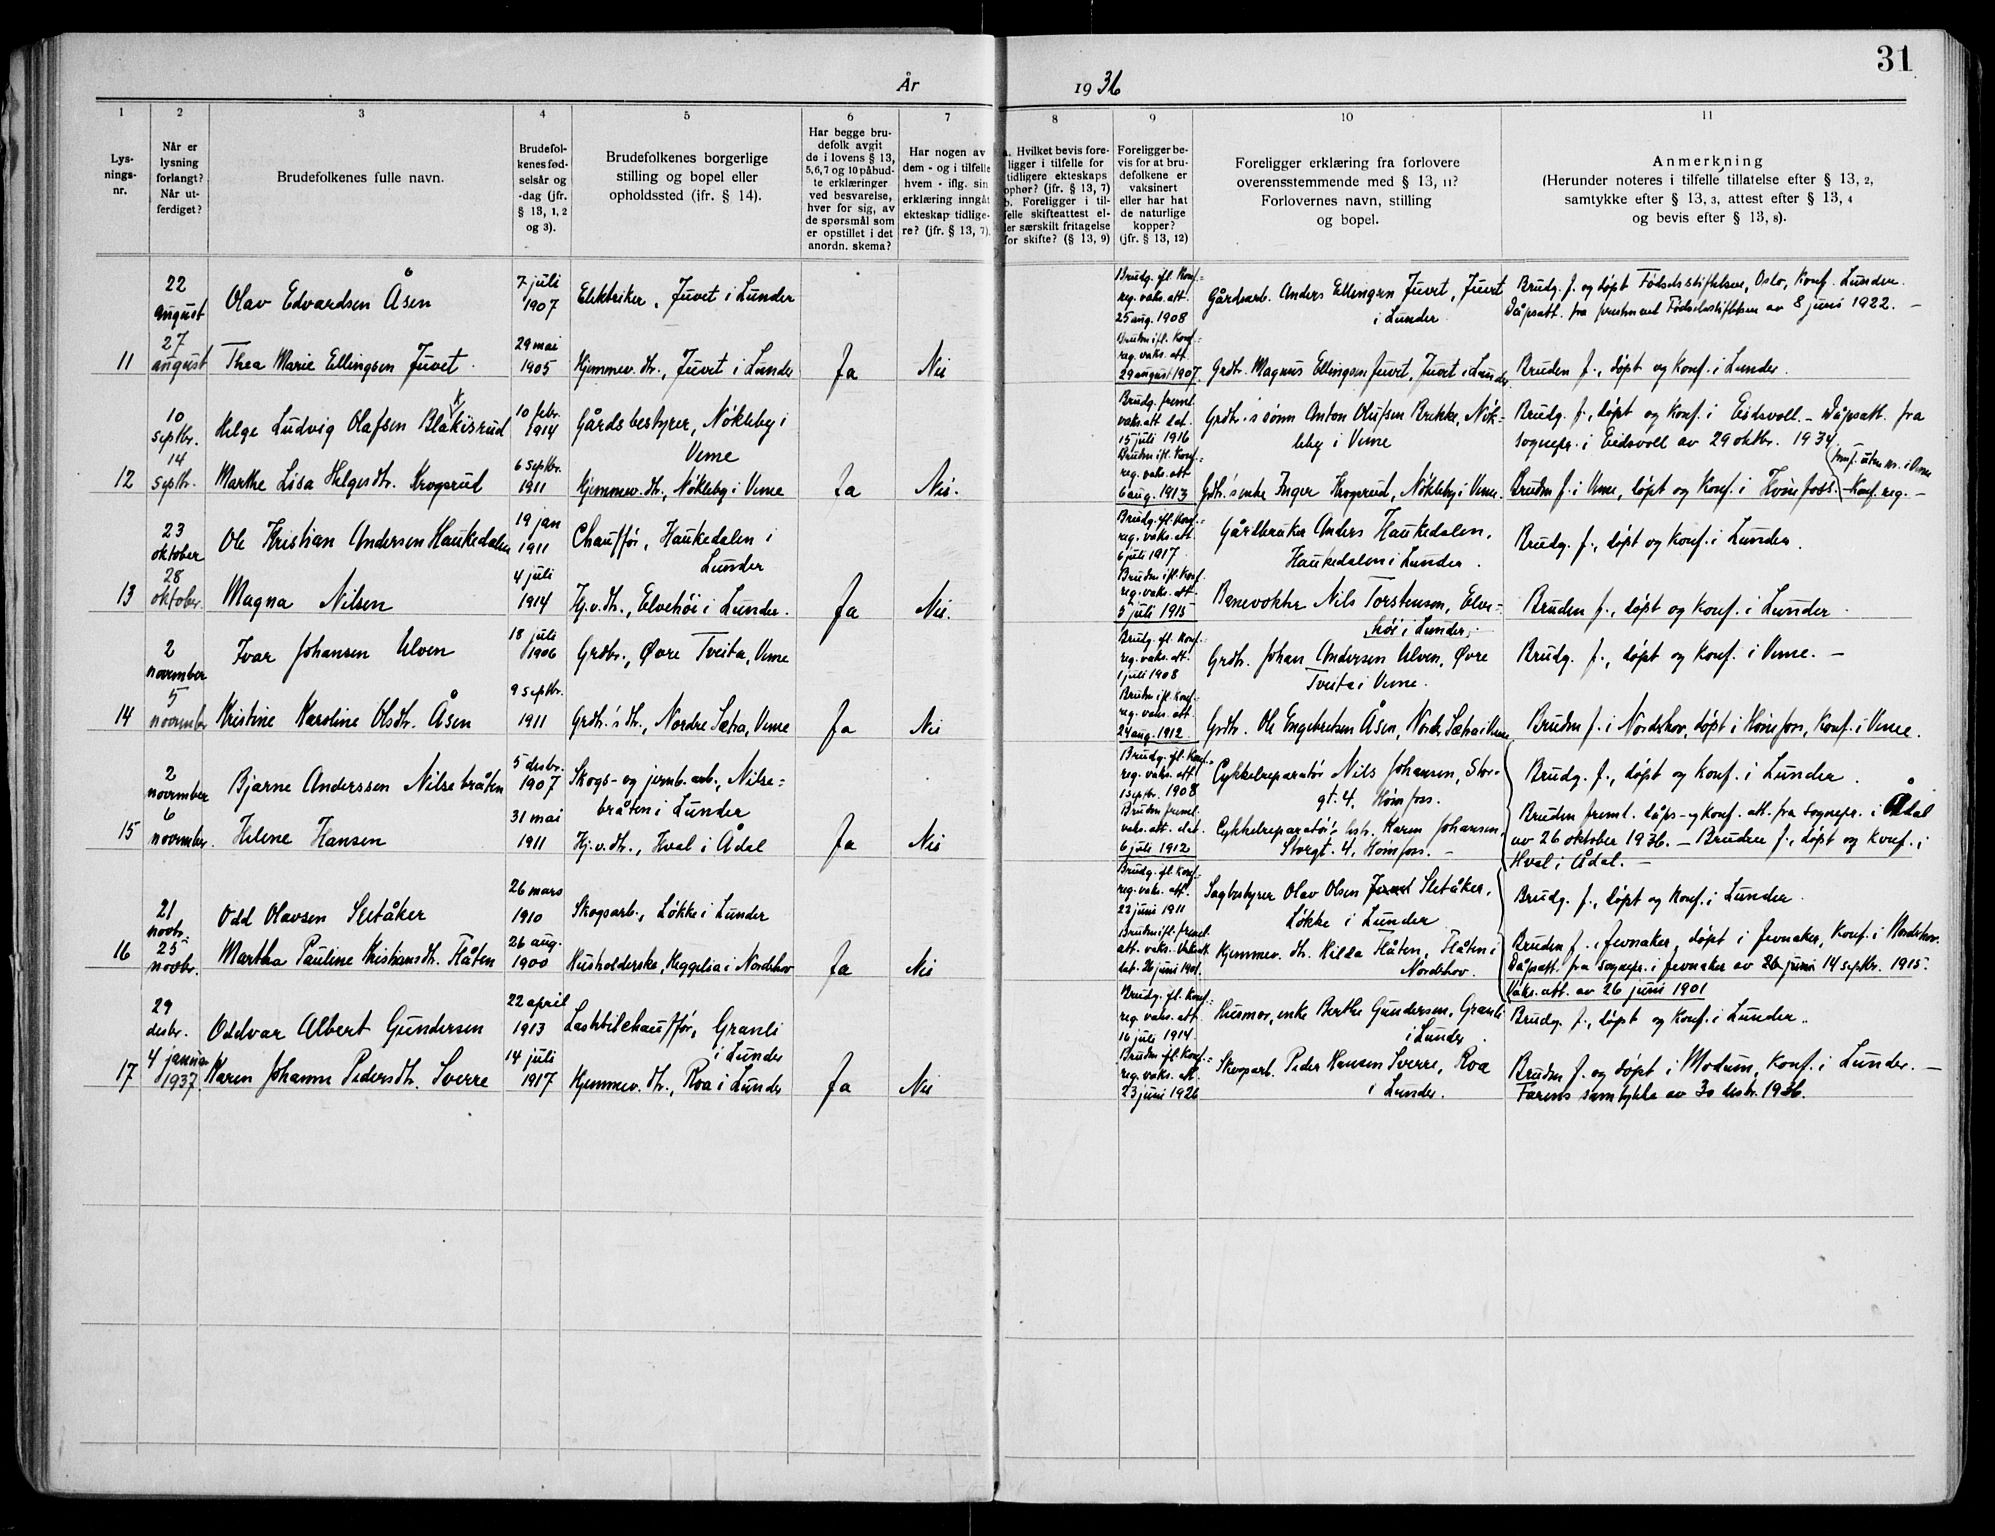 31
År 1936
1
2
3
4
5
6
7
8
9
10
11
Lys-
nings-
nr.
Når er
lysning
forlangt?
Når ut-
ferdiget?
Brudefolkenes fulle navn.
Brudefol-
kenes fød-
selsår og
-dag (jfr.
§ 13, 1, 2
og 3).
Brudefolkenes borgerlige
stilling og bopel eller
opholdssted (jfr. § 14).
Har begge bru-
defolk avgit
de i lovens § 13,
5, 6, 7 og 10 påbud-
te erklæringer
ved besvarelse,
hver for sig, av
de spørsmål som
er opstillet i det
anordn. skema?
Har nogen av
dem - og i tilfelle
hvem - iflg. sin
erklæring inngåt
ekteskap tidlige-
re? (jfr. § 13, 7).
a. Hvilket bevis fore-
ligger i tilfelle for
tidligere ekteskaps
ophør? (jfr. § 13, 7)
b. Foreligger i til-
felle skifteattest el-
ler særskilt fritagelse
for skifte? (§ 13, 9)
Foreligger be-
vis for at bru-
defolkene er
vaksinert
eller har hat
de naturlige
kopper?
(jfr. § 13, 12)
Foreligger erklæring fra forlovere
overensstemmende med § 13, 11?
Forlovernes navn, stilling
og bopel.
Anmerkning
(Herunder noteres i tilfelle tillatelse efter § 13, 2,
samtykke efter § 13, 3, attest efter § 13, 4
og bevis efter § 13, 8).
22
august
Olav Edvardsen Åsen
7 juli
1907
Elektriker, Juvet i Lunder
Brudg. ifl. Konf=
reg. vaks. att.
25 aug. 1908
Gårdsarb. Anders Ellingsen Juvet, Juvet
i Lunder
Brudg. f. og døpt Fødselsstiftelsen, Oslo, Konf. Lunder.
Dåpsatt. fra prestened Fødselsstiftelsen av 8 juni 1922. –
11
27
august
Thea Marie Ellingsen Juvet
29 mai
1905
Hjemmev. dtr., Juvet i Lunder
Ja
Nei
Bruden ifl. Konf=
reg. vaks. att.
29 august 1907.
Grdbr. Magnus Ellingsen Juvet, Juvet i Lunder
Bruden f., døpt og Konf. i Lunder.
10
septbr.
Helge Ludvig Olafsen Blakisrud
k
10 febr.
1914
Gårdsbestyrer, Nøkleby i
Veme
Brudg. freml.
vaks. att. dat.
15 juli 1916
Grdbr.'s sønn Anton Olufsen Brekke, Nøk-
leby i Veme
Brudg. f., døpt og Konf. i Eidsvoll. – Dåpsatt. fra
sognepr. i Eidsvoll av 29 oktbr. 1934.
12
14
septbr.
Marthe Lisa Helgesdtr. Krogsrud
6 septbr.
1911
Hjemmev. dtr., Nøkleby i Veme
Ja
Nei.
Bruden ifl. Konf=
reg. vaks. att.
6 aug. 1913
Grdbr.'s enke Inger Krogsrud, Nøkleby i Veme.
Bruden f. i Veme, døpt og Konf. i Hønefoss. – Konf. reg. –
23
oktober
Ole Kristian Andersen Haukedalen
19 jan
1911
Chauffør, Haukedalen i
Lunder
Brudg. ifl. Konf.=
reg. vaks. att.
6 juli 1917
Gårdbruker Anders Haukedalen,
Haukedalen i Lunder.
Brudg. f., døpt og Konf. i Lunder.
13
28
oktober
Magna Nilsen
4 juli
1914
Hj.v.dtr., Elvehøi i Lunder.
Ja
Nei.
Bruden ifl. Konf.
reg. vaks. att.
5 juli 1915
Banevokter Nils Torstensen, Elve=
høi i Lunder.
Bruden f., døpt og Konf. i Lunder.
2
november
Ivar Johansen Ulven
18 juli
1906
Grdbr., Øvre Tveita, Veme
Brudg. ifl. Konf.
reg. vaks. att.
1 juli 1908
Grdbr. Johan Andersen Ulven, Øvre
Tveita i Veme.
Brudg. f., døpt og Konf. i Veme. –
14
5
november
Kristine Karoline Olsdtr. Åsen
9 septbr.
1911
Grdbr.'s dtr., Nordre Sætra, Veme
Ja
Nei
Bruden ifl. Konf.
reg. vaks. att.
24 aug. 1912
Grdbr. Ole Engebretsen Åsen, Nordre Sætra i Veme
Bruden f. i Norderhov, døpt i Hønefoss, Konf. i Veme.
2
november
Bjarne Anderssen Nilsebråten
5 desbr.
1907
Skogs- og jernb. arb., Nilse=
bråten i Lunder
Brudg. ifl. Konf=
reg. vaks. att
1 septbr. 1908
Cykkelreparatør Nils Johansen, Stor-
gt. 4, Hønefoss.
Brudg. f., døpt og Konf. i Lunder.
15
6
november.
Helene Hansen
31 mai
1911
Hj.v.dtr., Hval i Ådal
Ja
Nei
Bruden freml.
vaks. att. dat.
6 juli 1912
Cykkelreparatør's hstr. Karen Johansen,
Storgt. 4, Hønefoss. –
Bruden freml. dåps- og Konf. att. fra sognepr. i Ådal
av 26 oktober 1936. – Bruden f., døpt og Konf. i
Hval i Ådal. –
21
novbr.
Odd Olavsen Sletåker
26 mars
1910
Skogsarb., Løkke i Lunder
Brudg. ifl. Konf=
reg. vaks. att.
22 juni 1911
Sagbestyrer Olav Olsen Sletåker,
Løkke i Lunder
Brudg. f., døpt og Konf. i Lunder.
16
25
novbr.
Martha Pauline Kristiansdtr. Flåten
26 aug.
1900
Husholderske, Heggelia i Norderhov
Ja
Nei
dat. 26 juni 1901.
Hjemmev. dtr. Hilda Flåten, Flåten i
Norderhov.
Bruden f. i Jevnaker, døpt i Jevnaker, Konf. i Norderhov.
Dåpsatt. fra sognepr. i Jevnaker av 26 juni 14 septbr. 1915.
Vaks. att. av 26 juni 1901
29
desbr.
Oddvar Albert Gundersen
22 april
1913
Lastebilchauffør, Granli
i Lunder
Brudg. ifl. Konf.=
reg. vaks. att.
16 juli 1914.
Husmor, enke Berthe Gundersen, Granli
i Lunder.
Brudg. f., døpt og Konf. i Lunder.
17
4 januar
1937.
Karen Johanne Pedersdtr. Sverre
14 juli
1917
Hjemmev. dtr., Roa i Lunder
Ja
Nei
Bruden ifl. Konf.=
reg. vaks. att.
23 juni 1926
Skogsarb. Peder Hansen Sverre, Roa
i Lunder.
Bruden f. og døpt i Modum, Konf. i Lunder. –
Farens samtykke av 30 desbr. 1936.